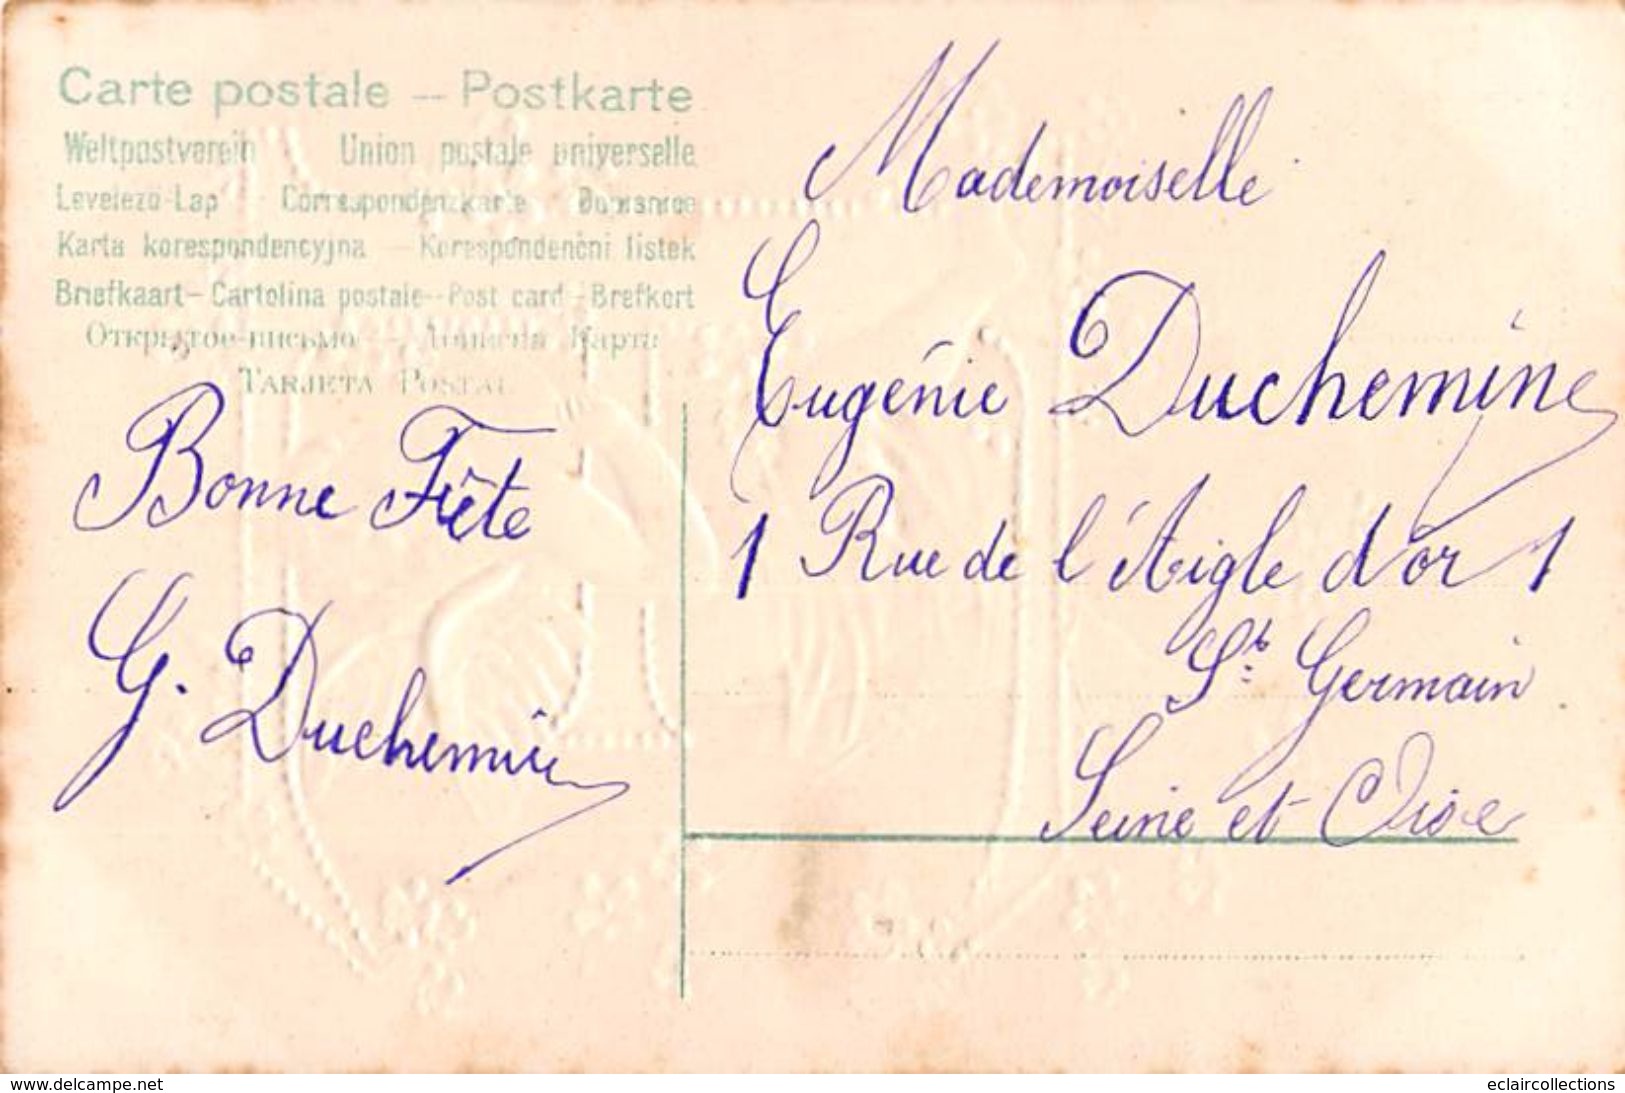 Carte postale -- Postkarte
Weltpostverein Union postale universelle
Levelező-Lap Correspondenzkarte Dopisnice
Karta korespondencyjna — Korespondenční listek
Briefkaart - Cartolina postale - Post card - Brefkort
Открытое-письмо —
TARJETA POSTAL
Bonne Fête
G. Duchemin
Mademoiselle
Eugénie Duchemine
1 Rue de l'Aigle d'or 1
St Germain
Seine et Oise
www.delcampe.net
eclaircollections